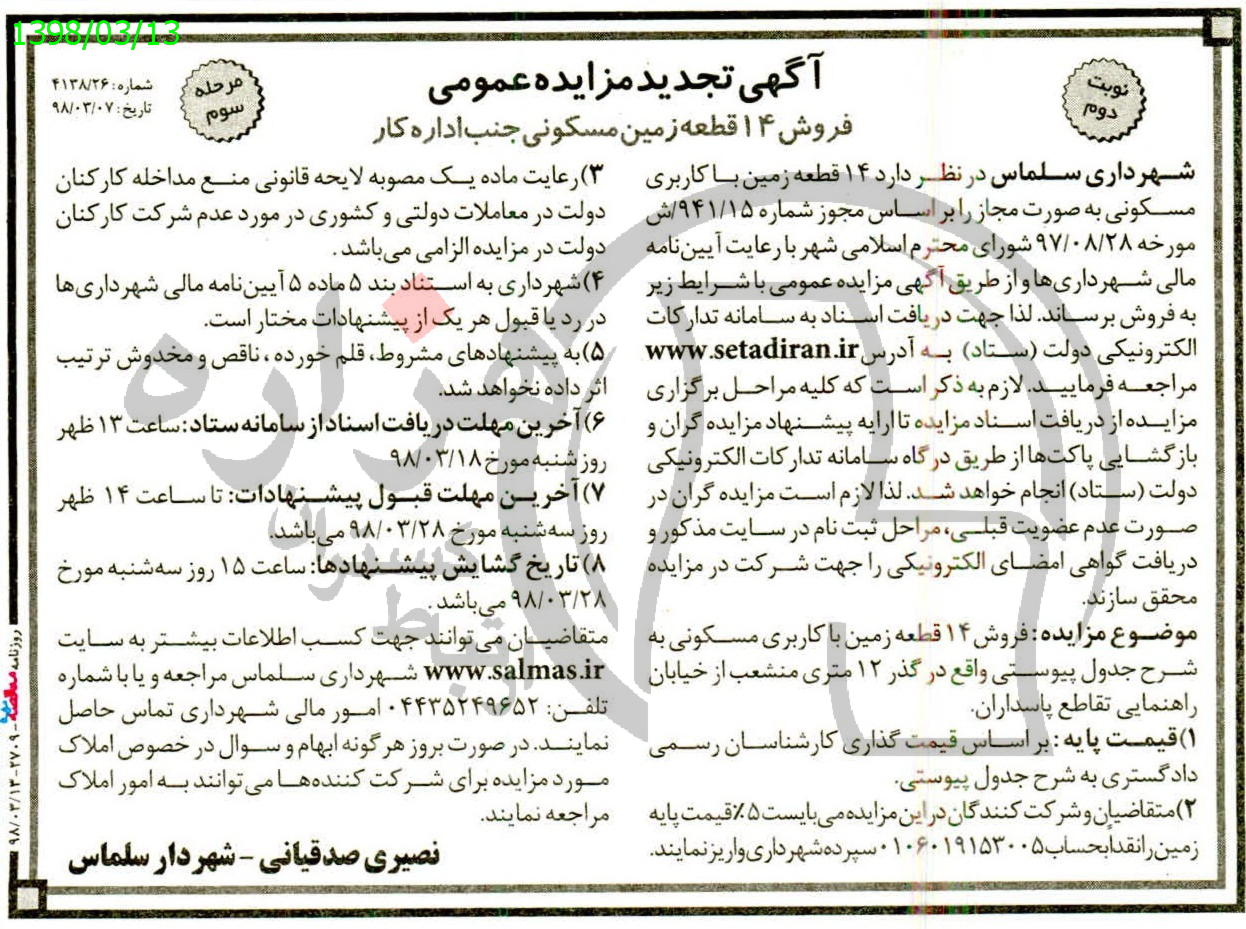 1398/03/13
نوبت
دوم
آگهی تجدید مزایده عمومی
فروش ۱۴ قطعه زمین مسکونی جنب اداره کار
مرحله
سوم
شماره: ۴۱۳۸/۲۶
تاریخ: ۹۸/۰۳/۰۷
شهرداری سلماس در نظر دارد ۱۴ قطعه زمین با کاربری
مسکونی به صورت مجاز را بر اساس مجوز شماره ۹۴۱/۱۵/ش
مورخه ۹۷/۰۸/۲۸ شورای محترم اسلامی شهر با رعایت آیین‌نامه
مالی شهرداری‌ها و از طریق آگهی مزایده عمومی با شرایط زیر
به فروش برساند. لذا جهت دریافت اسناد به سامانه تدارکات
الکترونیکی دولت (ستاد) به آدرس www.setadiran.ir
مراجعه فرمایید. لازم به ذکر است که کلیه مراحل برگزاری
مزایده از دریافت اسناد مزایده تا ارایه پیشنهاد مزایده گران و
بازگشایی پاکت‌ها از طریق درگاه سامانه تدارکات الکترونیکی
دولت (ستاد) انجام خواهد شد. لذا لازم است مزایده گران در
صورت عدم عضویت قبلی، مراحل ثبت نام در سایت مذکور و
دریافت گواهی امضای الکترونیکی را جهت شرکت در مزایده
محقق سازند.
موضوع مزایده: فروش ۱۴ قطعه زمین با کاربری مسکونی به
شرح جدول پیوستی واقع در گذر ۱۲ متری منشعب از خیابان
راهنمایی تقاطع پاسداران.
۱) قیمت پایه: بر اساس قیمت گذاری کارشناسان رسمی
دادگستری به شرح جدول پیوستی.
۲) متقاضیان و شرکت کنندگان در این مزایده می‌بایست ۵٪ قیمت پایه
زمین را نقداً بحساب ۰۱۰۶۰۱۹۱۵۳۰۰۵ سپرده شهرداری واریز نمایند.
۳) رعایت ماده یک مصوبه لایحه قانونی منع مداخله کارکنان
دولت در معاملات دولتی و کشوری در مورد عدم شرکت کارکنان
دولت در مزایده الزامی می‌باشد.
۴) شهرداری به استناد بند ۵ ماده ۵ آیین‌نامه مالی شهرداری‌ها
در رد یا قبول هر یک از پیشنهادات مختار است.
۵) به پیشنهادهای مشروط، قلم خورده، ناقص و مخدوش ترتیب
اثر داده نخواهد شد.
۶) آخرین مهلت دریافت اسناد از سامانه ستاد: ساعت ۱۳ ظهر
روز شنبه مورخ ۹۸/۰۳/۱۸
۷) آخرین مهلت قبول پیشنهادات: تا ساعت ۱۴ ظهر
روز سه‌شنبه مورخ ۹۸/۰۳/۲۸ می‌باشد.
۸) تاریخ گشایش پیشنهادها: ساعت ۱۵ روز سه‌شنبه مورخ
۹۸/۰۳/۲۸ می‌باشد.
متقاضیان می‌توانند جهت کسب اطلاعات بیشتر به سایت
www.salmas.ir شهرداری سلماس مراجعه و یا با شماره
تلفن: ۰۴۴۳۵۲۴۹۶۵۲ امور مالی شهرداری تماس حاصل
نمایند. در صورت بروز هرگونه ابهام و سوال در خصوص املاک
مورد مزایده برای شرکت کننده‌ها می‌توانند به امور املاک
مراجعه نمایند.
نصیری صدقیانی - شهردار سلماس
روزنامه مناقصه - ۲۷۰۹ - ۹۸/۰۳/۱۳
هزاره
گستران
ارتباط